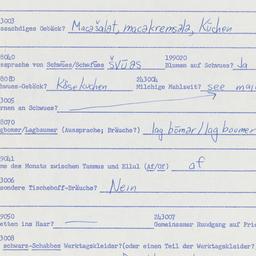 3003
essachdiges Gebäck? Macašalat, macakremsala, Kuchen
8040 199020
ssprache von Schwues/Schefuss švūəs Blumen auf Schwues? Ja
8080 243004
hwues-Gebäck? Käsekuchen Milchige Mahlzeit? see mai
3005
rnen an Schwues?
8070
gbomer/Lagbaumer (Aussprache; Bräuche?) lag bōmər/lag boumer
9041
me des Monats zwischen Tammus und Ellul (AF/OF) af
3006
sondere Tischeboff-Bräuche? Nein
9050 243007
etten ins Haar? Gemeinsamer Rundgang auf Fri
3008
schwarz-Schabbes Werktagskleider?(oder einen Teil der Werktagskleider?